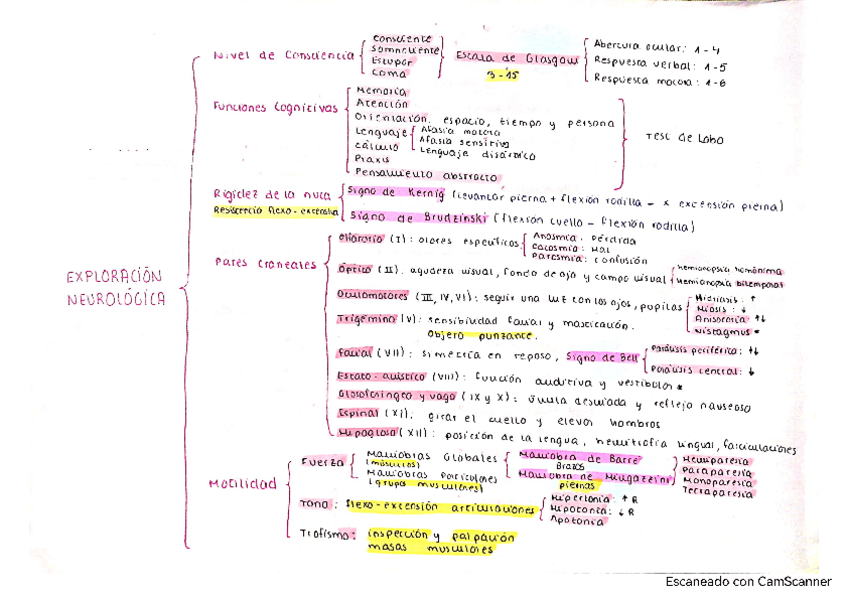 EXPLORACIÓN
NEUROLÓGICA
Nivel de Consciencia
consciente
Somnoliente
Estupor
Coma
Escala de Glasgow
3-15
Abertura ocular: 1-4
Respuesta verbal: 1-5
Respuesta motora: 1-6
Funciones Cognitivas
Memoria
Atención
Orientación. espacio, tiempo y persona
Lenguaje
Afasia motora
Afasia sensitiva
Lenguaje disártrico
cálculo
Praxis
Pensamiento abstracto
Test de Lobo
Rigidez de la nuca
Resistencia flexo-extensión
Signo de Kernig (levantar pierna + flexión rodilla - x extensión pierna)
Signo de Brudzinski (flexión cuello - flexión rodilla)
Pares craneales
Olfatorio (I): olores específicos
Anosmia: pérdida
Cacosmia: mal
Parosmia: confusión
Óptico (II). agudeza visual, fondo de ojo y campo visual
hemianopsia homónima
Hemianopsia bitemporal
Oculomotores (III, IV, VI): seguir una luz con los ojos, pupilas
Midriasis: ↑
Miosis: ↓
Anisocoria ↑↓
Nistagmus *
Trigémino (V): sensibilidad facial y masticación.
Objeto punzante.
Facial (VII): simetría en reposo, Signo de Bell
Parálisis periférica: ↑↓
Parálisis central: ↓
Estato-acústico (VIII): función auditiva y vestibular *
Glosofaríngeo y vago (IX y X): úvula desviada y reflejo nauseoso
Espinal (XI): girar el cuello y elevar hombros
Hipogloso (XII): posición de la lengua, hemiatrofia lingual, fasciculaciones
Motilidad
Fuerza
Maniobras Globales
(músculos)
Maniobras Particulares
(grupos musculares)
Maniobra de Barré
Brazos
Maniobra de Mingazzini
piernas
Hemiparesia
Paraparesia
Monoparesia
Tetraparesia
Tono: flexo-extensión articulaciones
Hipertonía: ↑ R
Hipotonía: ↓ R
Apotonía
Trofismo: inspección y palpación
masas musculares
Escaneado con CamScanner